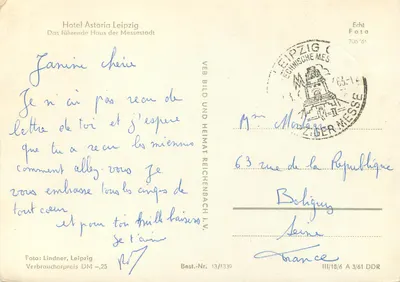 Hotel Astoria Leipzig
Das führende Haus der Messestadt
Echt
Foto
Janine chérie
Je n'ai pas reçu de
lettre de toi et j'espère
que tu a reçu les miennes
comment allez vous Je
vous embrasse tous les anges de
tout cœur
et pour toi mille baisers
je t'aime
VEB BILD UND HEIMAT REICHENBACH I. V.
LEIPZIG
TECHNISCHE MESSE
63
LEIPZIGER MESSE
Mme
63 rue de la République
Seine
France
Foto: Lindner, Leipzig
Verbraucherpreis DM -,25
Best.-Nr.
III/18/6 A 3/61 DDR